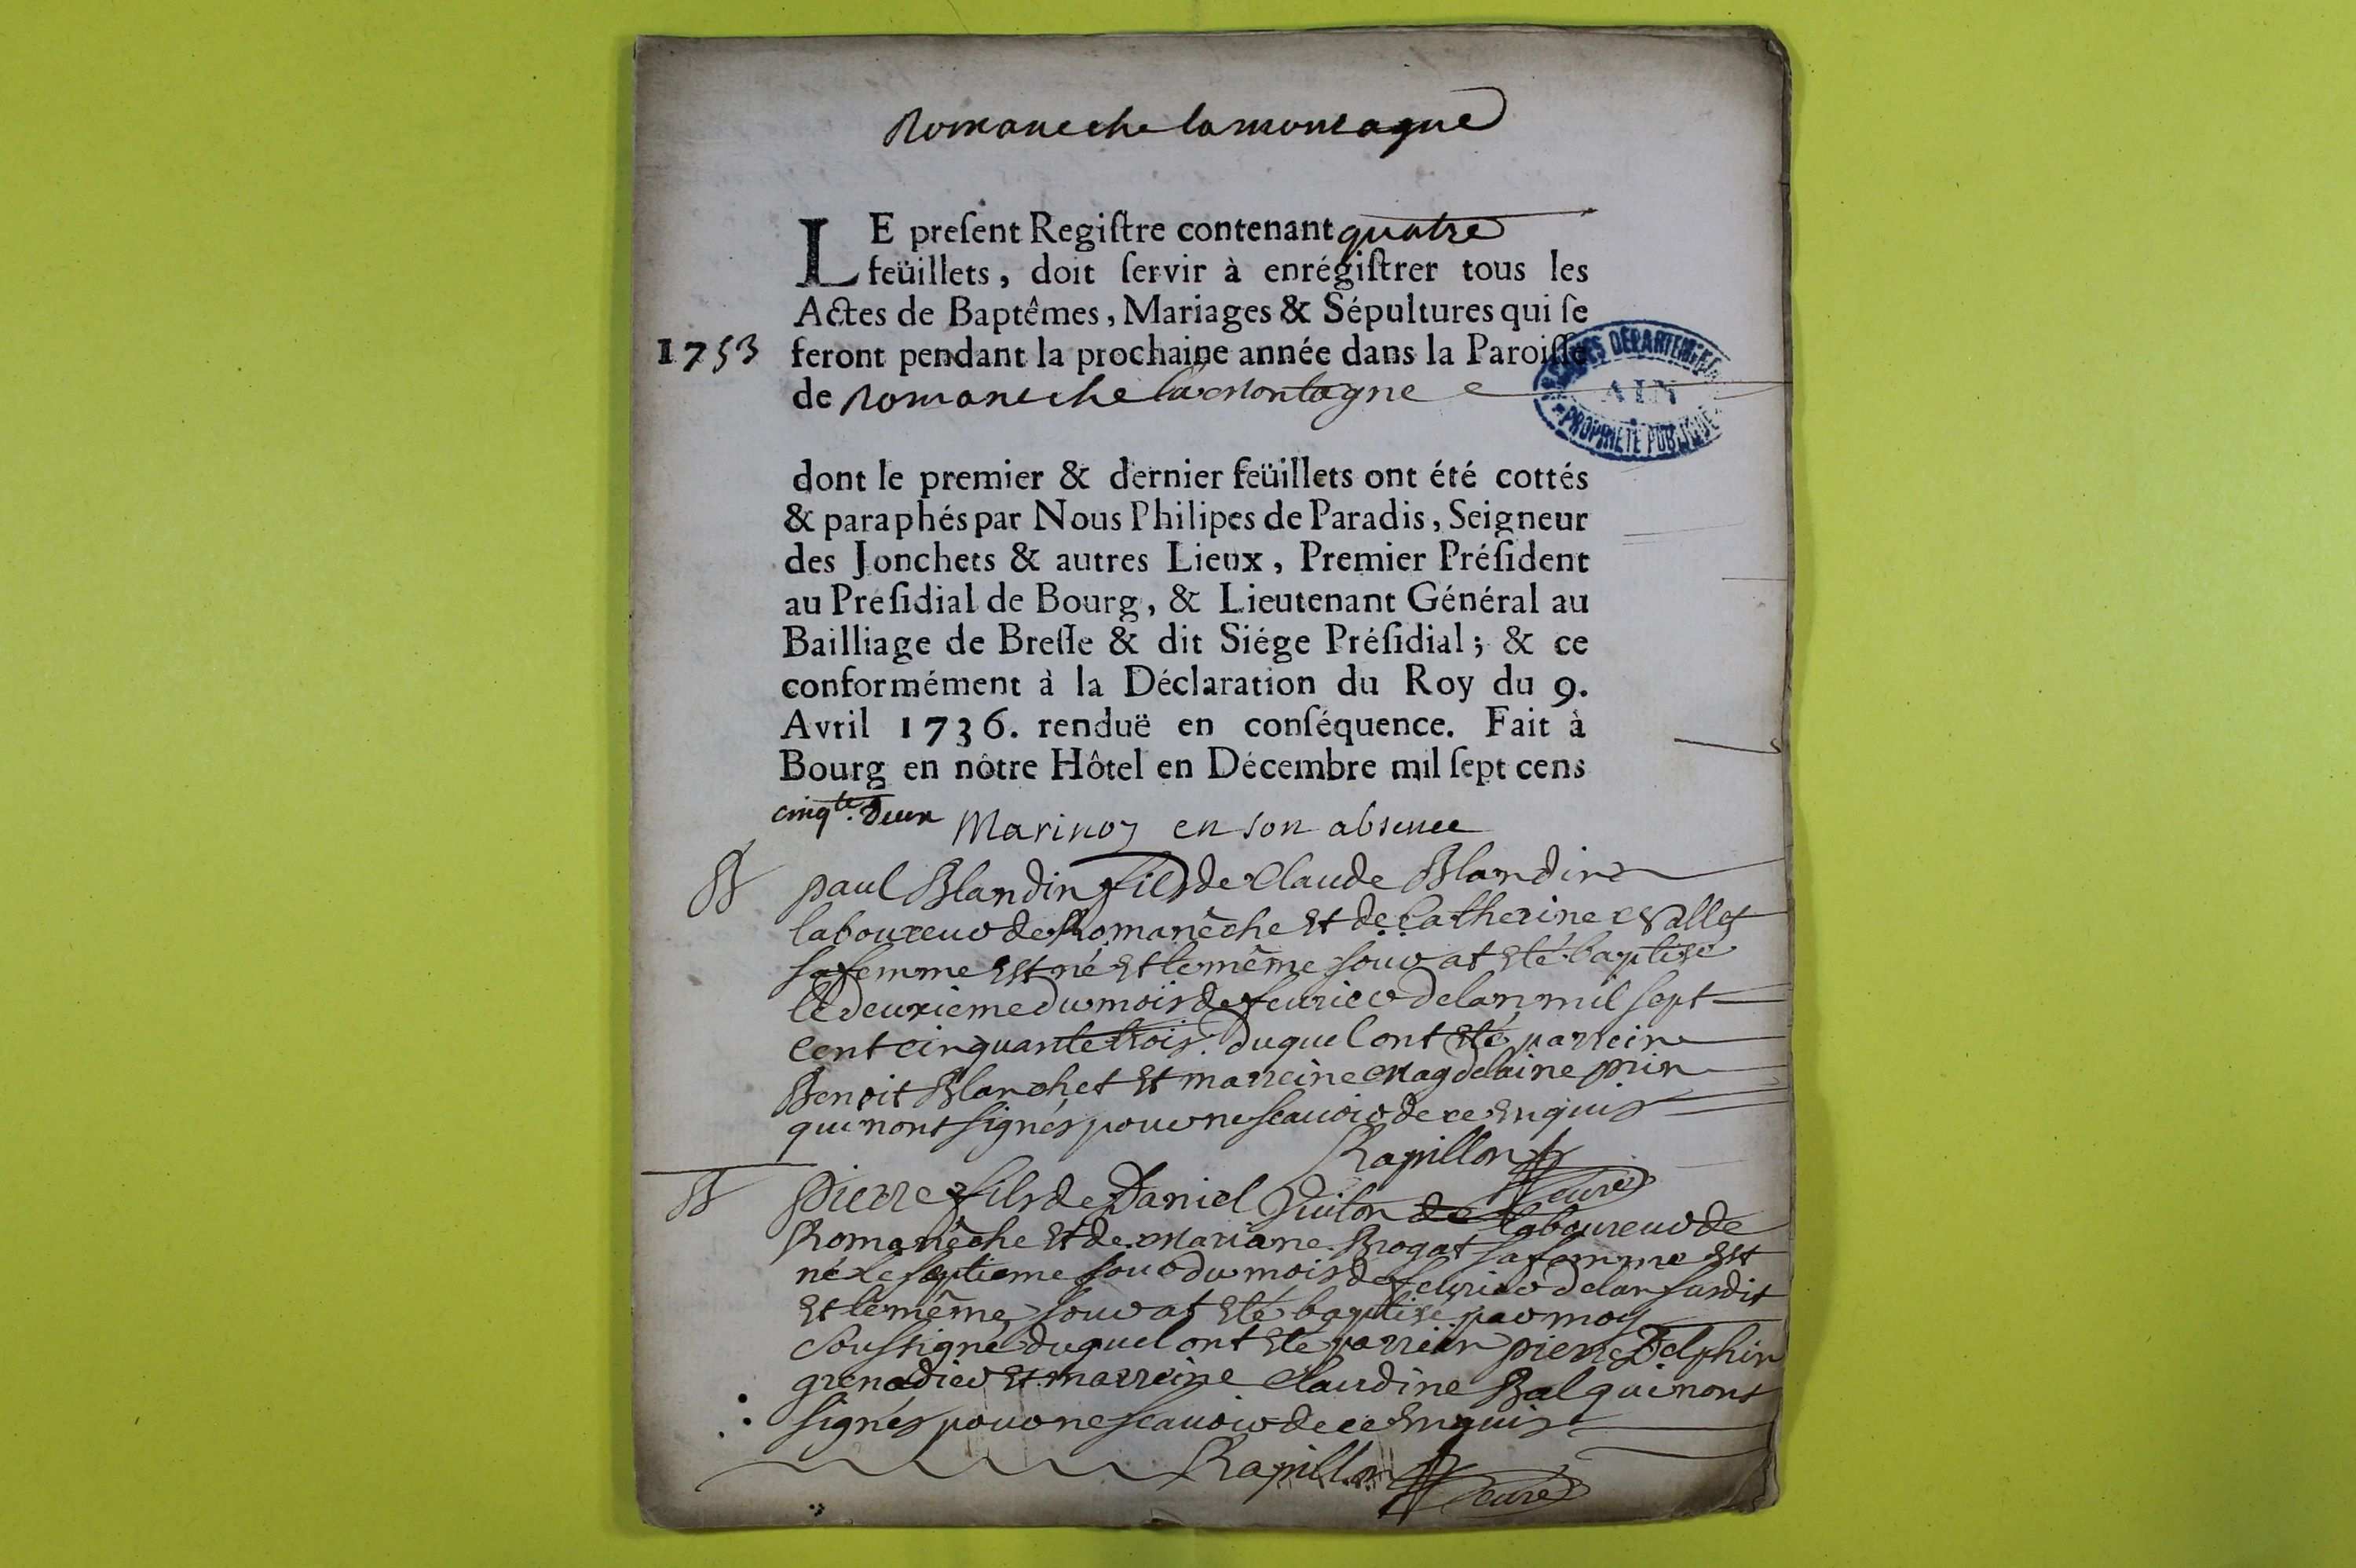 Romaneche la montagne
LE preſent Regiſtre contenant quatre
feüillets, doit ſervir à enrégiſtrer tous les
Actes de Baptêmes, Mariages & Sépultures qui ſe
1753 feront pendant la prochaine année dans la Paroiſſe
de Romaneche la Montagne
ARCHIVES DÉPARTEMENTALES
AIN
PROPRIÉTÉ PUBLIQUE
dont le premier & dernier feüillets ont été cottés
& paraphés par Nous Philipes de Paradis, Seigneur
des Jonchets & autres Lieux, Premier Préſident
au Preſidial de Bourg, & Lieutenant Général au
Bailliage de Breſſe & dit Siége Préſidial; & ce
conformément à la Déclaration du Roy du 9.
Avril 1736. renduë en conſéquence. Fait à
Bourg en nôtre Hôtel en Décembre mil ſept cens
cinqte. deux Marinoz en son absence
B paul Blandin fils de Claude Blandin
laboureur de Romanêche Et de Catherine Vallet
sa femme Est né Et le même jour at Eté baptisé
le deuxième du mois de feurier de lan mil sept
cent cinquante trois. duquel ont Eté parrein
Benoit Blanchet Et marreine Magdelaine prin
qui nont signés pour ne scauoir de ce Enquis
Rapillon curé
B pierre fils de Daniel Guiton de laboureur de
Romanêche Et de Mariane Brogat sa femme Est
né le septieme jour du mois de feurier de lan susdit
Et le même jour at Eté baptisé par moy
soussigné duquel ont Eté parrein pierre Delphin
grenadier Et marreine Claudine Bal qui nont
signés pour ne scauoir de ce Enquis
Rapillon curé